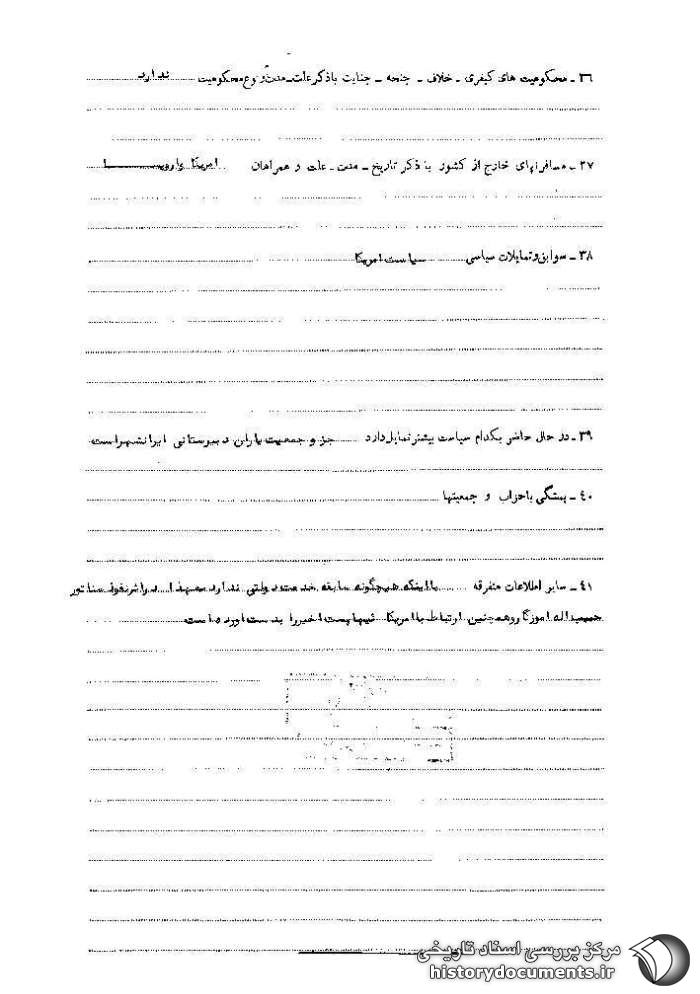 ۳۶ ـ محکومیت های کیفری ـ خلاف ـ جنحه ـ جنایت با ذکر علت ـ مدت و نوع محکومیت ندارد
۳۷ ـ مسافرتهای خارج از کشور با ذکر تاریخ ـ مدت ـ علت و همراهان امریکا واروپا
۳۸ ـ سوابق و تمایلات سیاسی سیاست امریکا
۳۹ ـ در حال حاضر بکدام سیاست بیشتر تمایل دارد جزو جمعیت یاران دبیرستانی ایرانشهر است
۴۰ ـ بستگی با احزاب و جمعیتها
۴۱ ـ سایر اطلاعات متفرقه بااینکه هیچگونه سابقه خدمت دولتی ندارد معهذا دراثر نفوذ سناتور
حبیب اله اموزگار و همچنین ارتباط با امریکا ئیها پست اخیر را بدست اورده است
مرکز بررسی اسناد تاریخی
historydocuments.ir